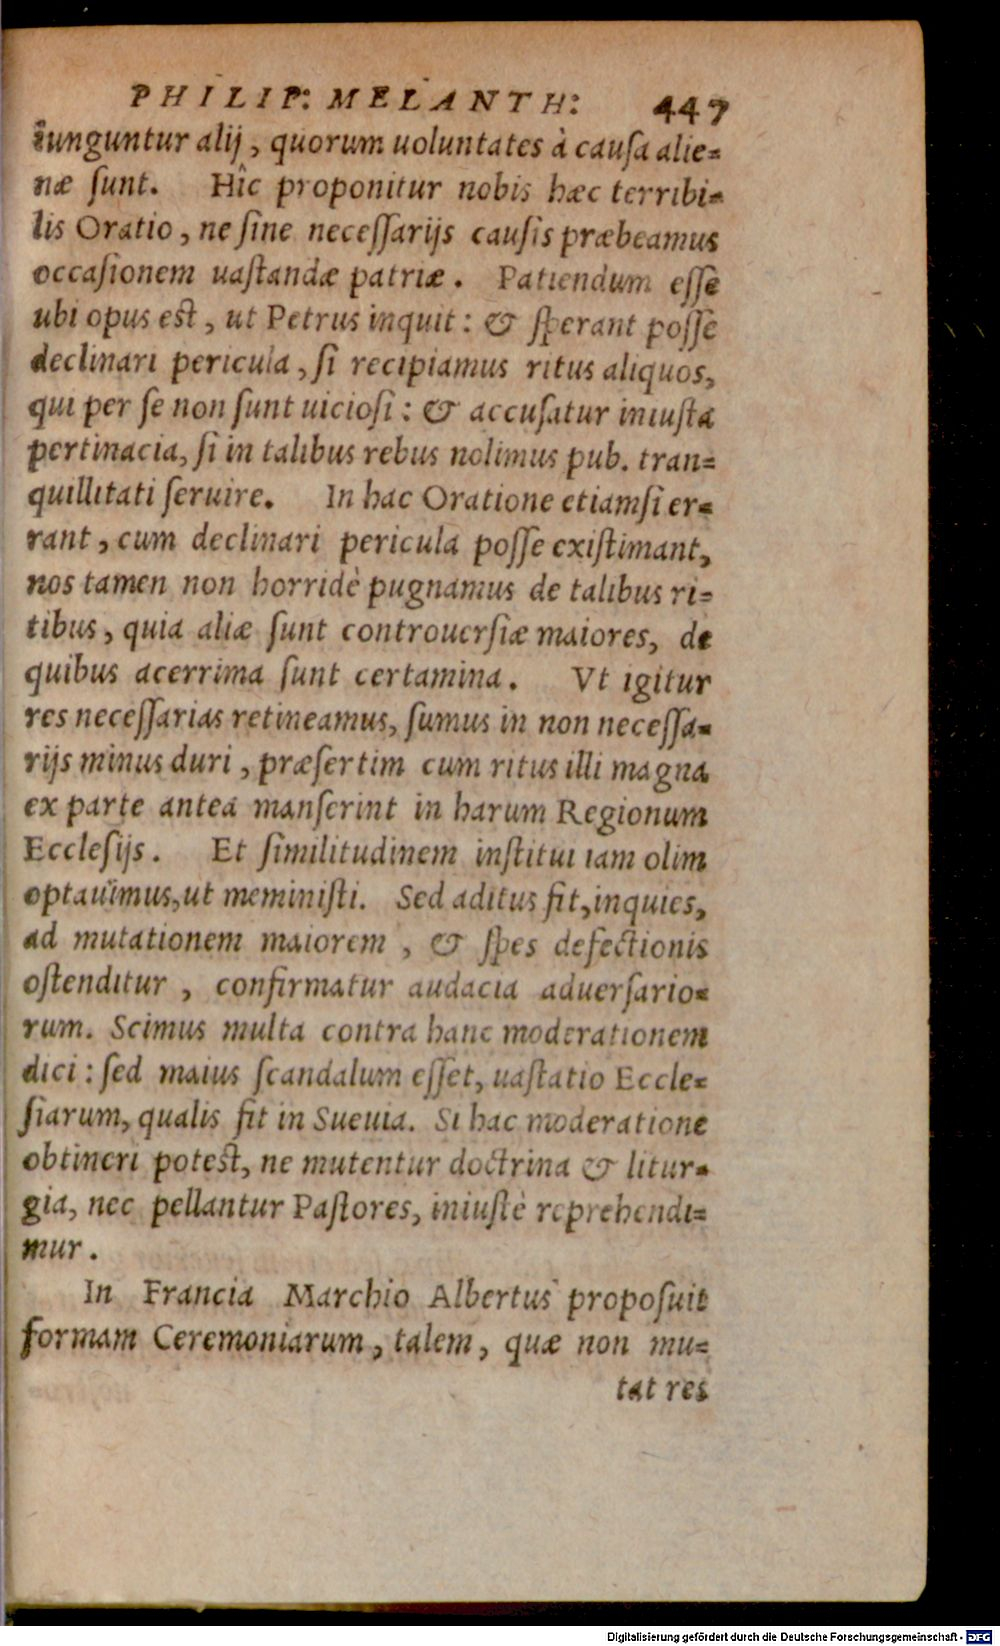 PHILIP: MELANTH: 447
iunguntur alij, quorum uoluntates à causa alie=
næ sunt. Hîc proponitur nobis hæc terribi=
lis Oratio, ne sine necessarijs causis præbeamus
occasionem uastandæ patriæ. Patiendum esse
ubi opus est, ut Petrus inquit: & sperant posse
declinari pericula, si recipiamus ritus aliquos,
qui per se non sunt uiciosi: & accusatur iniusta
pertinacia, si in talibus rebus nolimus pub. tran=
quillitati seruire. In hac Oratione etiamsi er=
rant, cum declinari pericula posse existimant,
nos tamen non horridè pugnamus de talibus ri=
tibus, quia aliæ sunt controuersiæ maiores, de
quibus acerrima sunt certamina. Vt igitur
res necessarias retineamus, sumus in non necessa=
rijs minus duri, præsertim cum ritus illi magna
ex parte antea manserint in harum Regionum
Ecclesijs. Et similitudinem institui iam olim
optauimus, ut meministi. Sed aditus fit, inquies,
ad mutationem maiorem, & spes defectionis
ostenditur, confirmatur audacia aduersario=
rum. Scimus multa contra hanc moderationem
dici: sed maius scandalum esset, uastatio Eccle=
siarum, qualis fit in Sueuia. Si hac moderatione
obtineri potest, ne mutentur doctrina & litur=
gia, nec pellantur Pastores, iniustè reprehendi=
mur.
In Francia Marchio Albertus proposuit
formam Ceremoniarum, talem, quæ non mu=
tat res
Digitalisierung gefördert durch die Deutsche Forschungsgemeinschaft - DFG